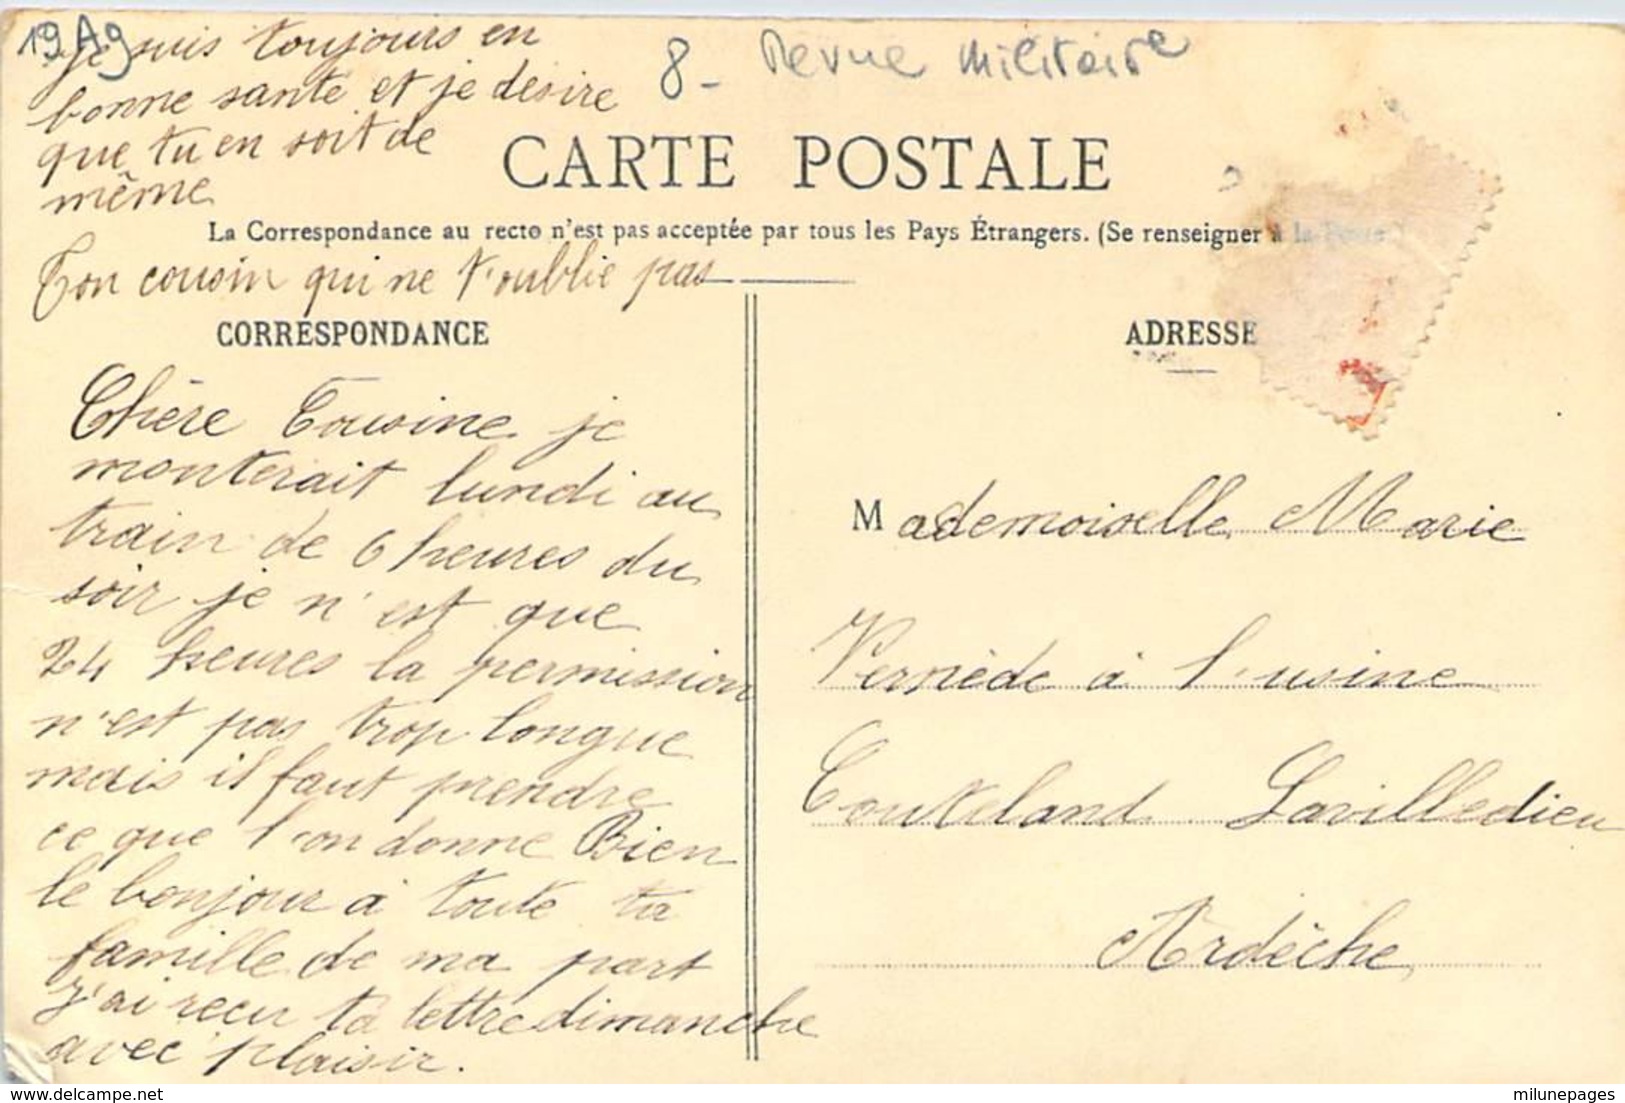 19 Ag
8 - Revue Militaire
Je suis toujours en
bonne santé et je désire
que tu en soit de
même
CARTE POSTALE
La Correspondance au recto n'est pas acceptée par tous les Pays Étrangers. (Se renseigner à la Poste.)
Ton cousin qui ne t'oublie pas
CORRESPONDANCE
Chère Cousine je
monterait lundi au
train de 6 heures du
soir je n'est que
24 heures la permission
n'est pas trop longue
mais il faut prendre
ce que l'on donne Bien
le bonjour à toute ta
famille de ma part
J'ai recu ta lettre dimanche
avec plaisir.
ADRESSE
Mademoiselle Marie
Vernède à l'usine
Lavilledieu
Ardèche
milunepages
delcampe.net